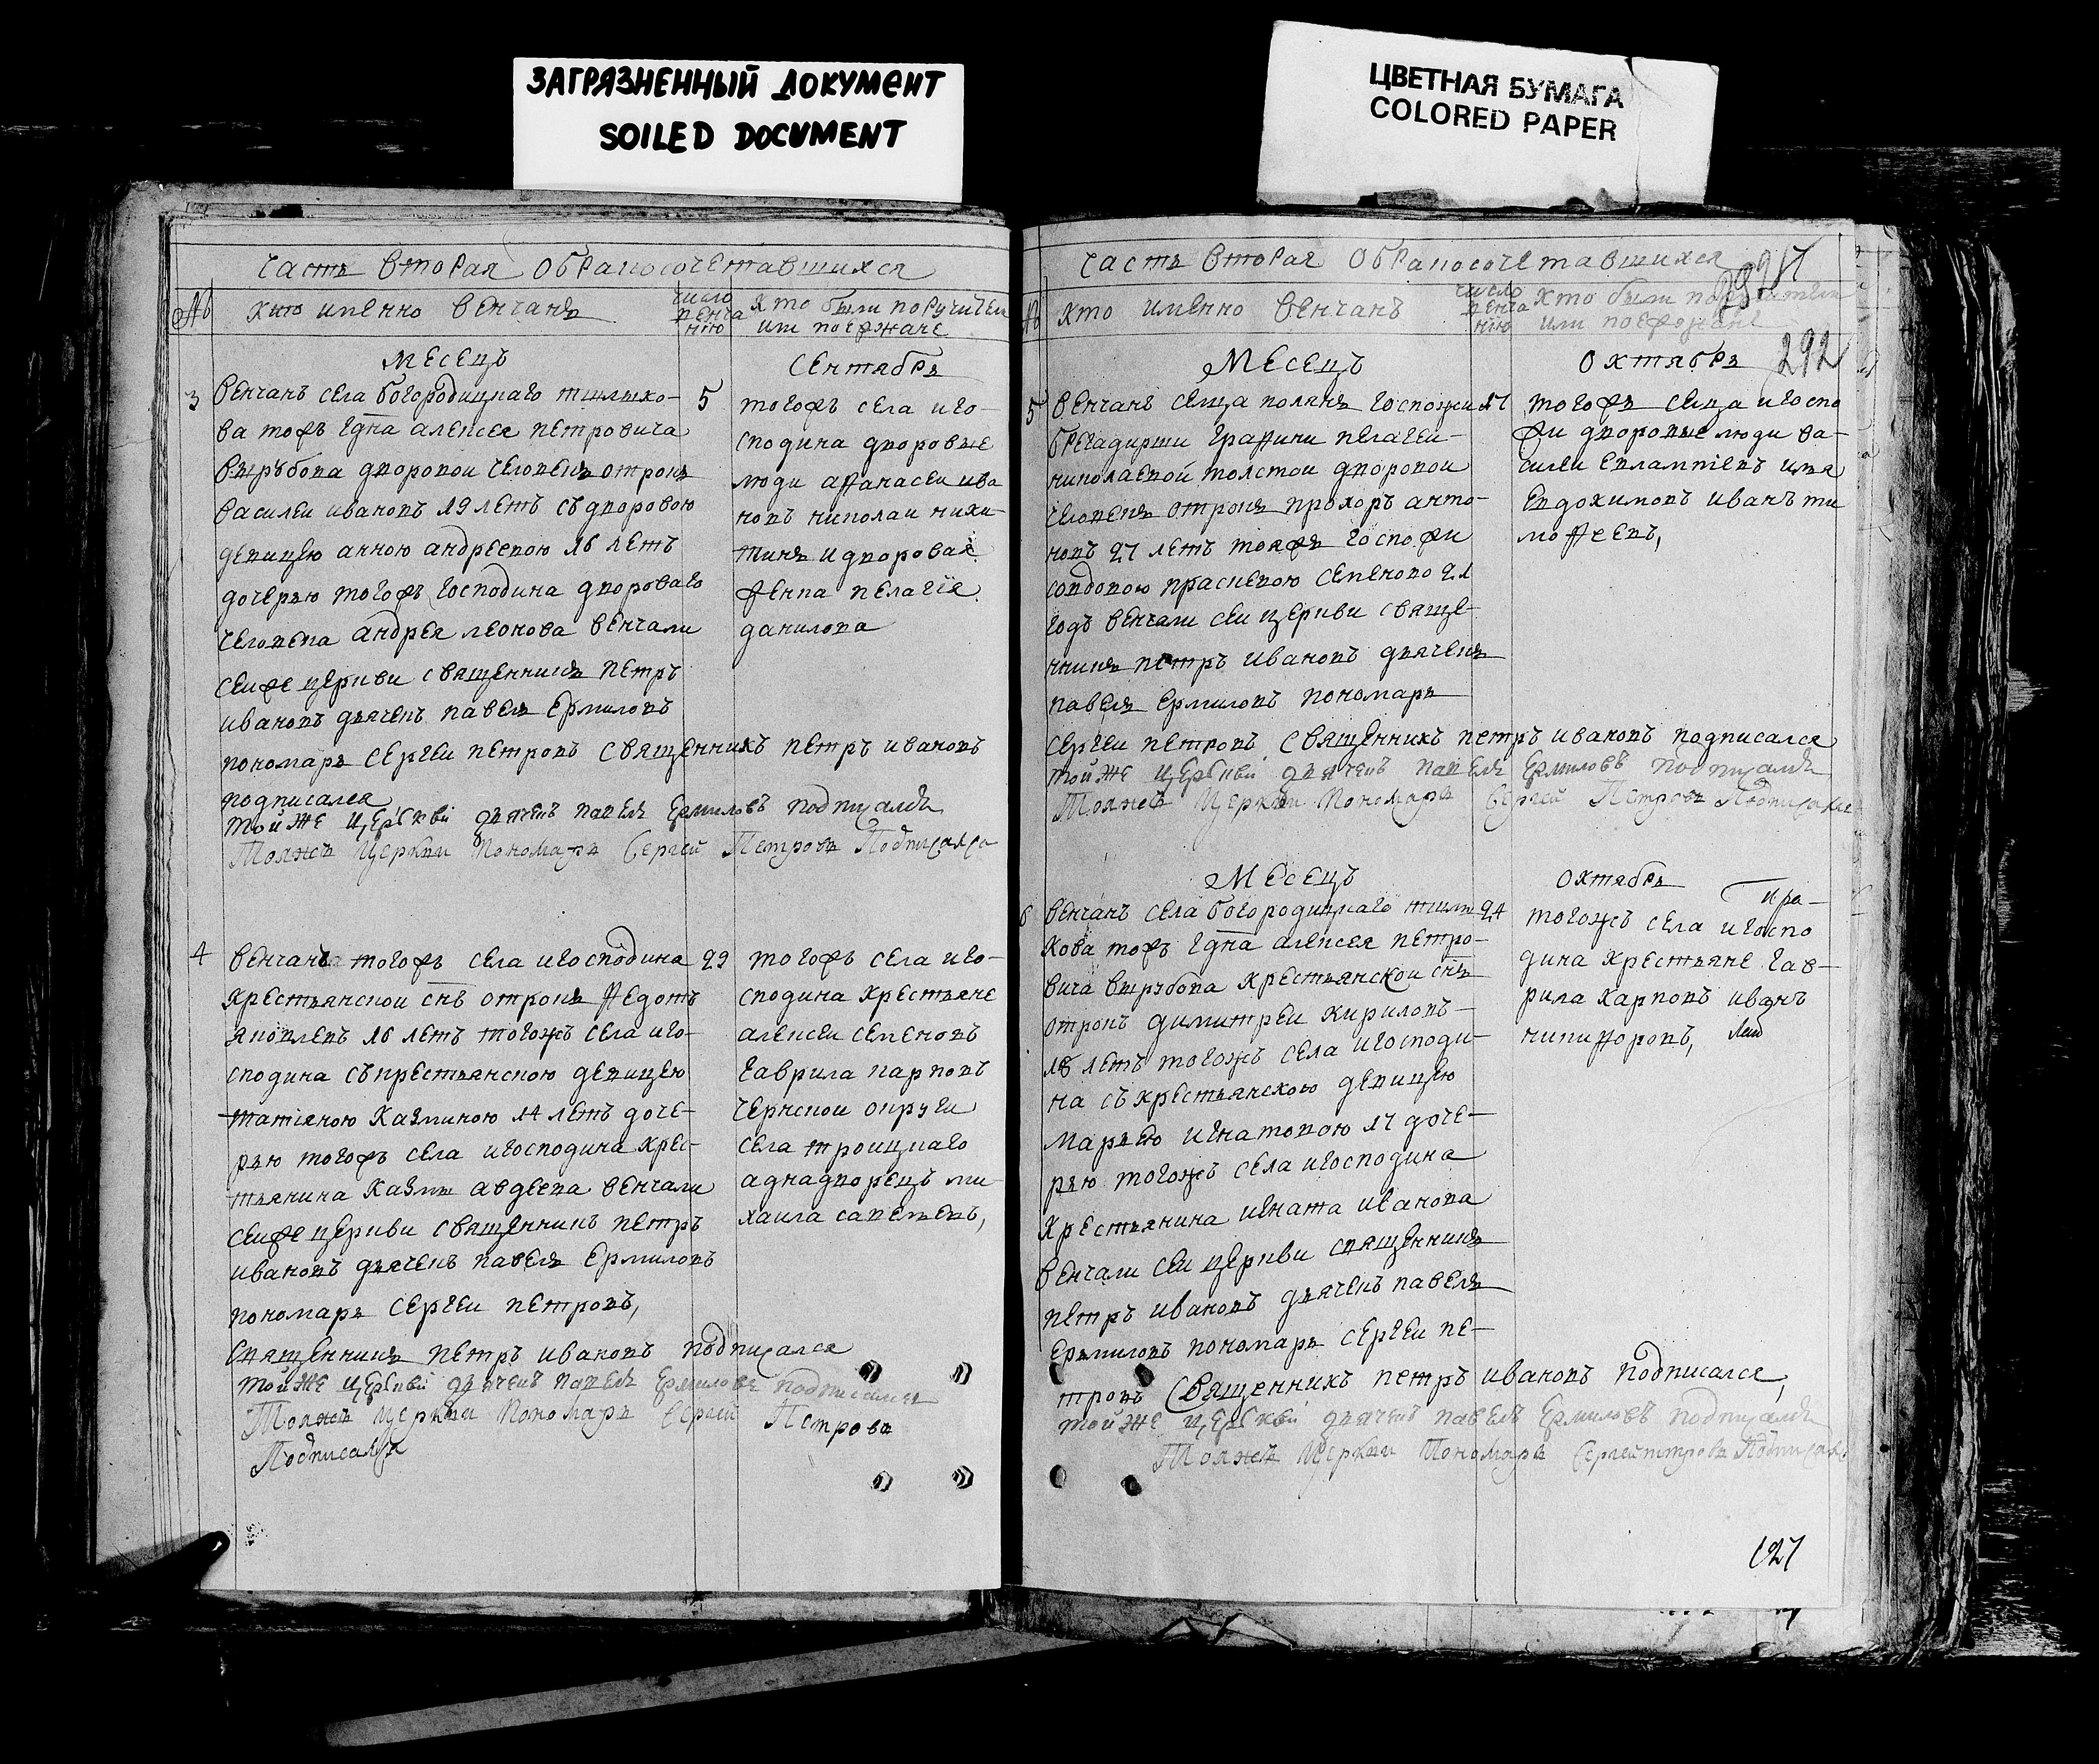 ЗАГРЯЗНЕННЫЙ ДОКУМЕНТ
SOILED DOCUMENT
ЦВЕТНАЯ БУМАГА
COLORED PAPER
часть вторая обракосочетавшихся
№ кто именно венчанъ число венча нїю кто были поручители или поезжане
месецъ сентябрь
3 венчанъ села богородицкаго
ва тожъ гдна алексея петровича
дворовой человекъ отрокъ
василеи ивановъ 19 летъ съ дворовою
девицею анною андреевою 16 летъ
дочерью тогожъ господина двороваго
человека андрея леонова венчали
сеиже церкви священникъ петръ
ивановъ дьячекъ павелъ ермиловъ
пономарь сергеи петровъ священникъ петръ ивановъ
подписался
тойже церькви дьячекъ павелъ ермиловъ подписался
Тояже церкви пономарь Сергей Петровъ Подписался
5 тогожъ села иго-
сподина дворовые
люди афанасеи ива
новъ николаи ники-
тинъ и дворовая
женка пелагїя
данилова
4 венчанъ тогожъ села игосподина 29
крестьянскои снъ отрокъ федотъ
яковлевъ 16 летъ тогожъ села иго-
сподина съкрестьянскою девицею
татїяною казминою 14 летъ доче-
рью тогожъ села игосподина крес-
тьянина казмы авдеева венчали
сеиже церкви священникъ петръ
ивановъ дьячекъ павелъ ермиловъ
пономарь сергеи петровъ,
священникъ петръ ивановъ подписался
тойже церькви дьячекъ павелъ ермиловъ подписался
Тояже церкви пономарь Сергей Петровъ
Подписался
тогожъ села иго-
сподина крестьяне
алексеи семеновъ
гаврила карповъ
чернскои округи
села троицкаго
аднадворецъ ми-
хаила савельевъ,
часть вторая обракосочетавшихся
№ кто именно венчанъ число венча нїю кто были поручители или поезжане
292
месецъ октябрь
5 венчанъ сельца полянъ госпожи 17
брегадирши графини пелагеи
николаевой толстои дворовои
человекъ отрокъ прохоръ анто-
новъ 27 летъ тояжъ госпожи
совдовою прасковею семеново 21
годъ венчали сеи церкви свяще-
нникъ петръ ивановъ дьячекъ
павелъ ермиловъ пономарь
сергеи петровъ священникъ петръ ивановъ подписался
тойже церькви дьячекъ павелъ ермиловъ подписался
Тояже церкви Пономарь Сергей Петровъ Подписался
тогожъ сельца игоспо
жи дворовые люди ва-
силеи евлампїевъ
евдокимовъ иванъ ти
мофеевъ,
месецъ октябрь
6 венчанъ села богородицкаго 24
кова тожъ гдна алексея петро-
вича крестьянскои снъ
отрокъ димитреи кириловъ
18 летъ тогожъ села игосподи-
на съкрестьянскою девицею
марьею игнатовою 17 доче-
рью тогожъ села игосподина
крестьянина игната иванова
венчали сеи церкви священникъ
петръ ивановъ дьячекъ павелъ
ермиловъ пономарь сергеи пе-
тровъ священникъ петръ ивановъ подписался,
тойже церькви дьячекъ павелъ ермиловъ подписался
Тояже Церкви Пономарь Сергей петровъ Подписался
тогожъ села игоспо
дина крестьяне гав-
рила карповъ иванъ
никифоровъ,
127